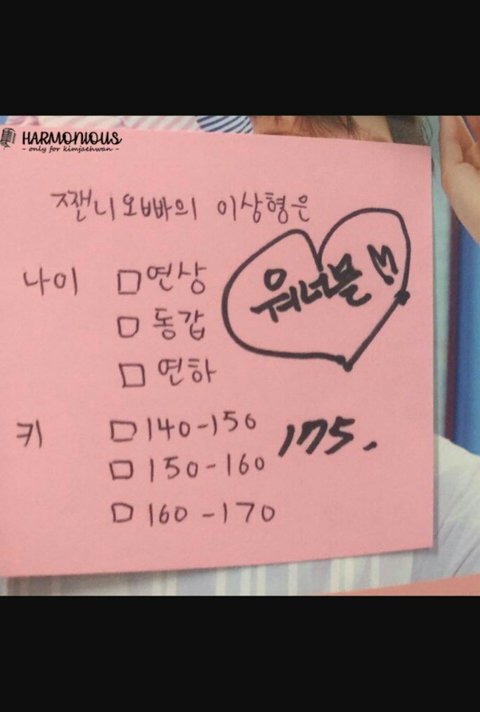 HARMONIOUS
- only for kimjaehwan -
쨴니오빠의 이상형은
나이 □연상
□ 동갑
□ 연하
워너블
키 □140-150
□ 150-160
□ 160-170
175.